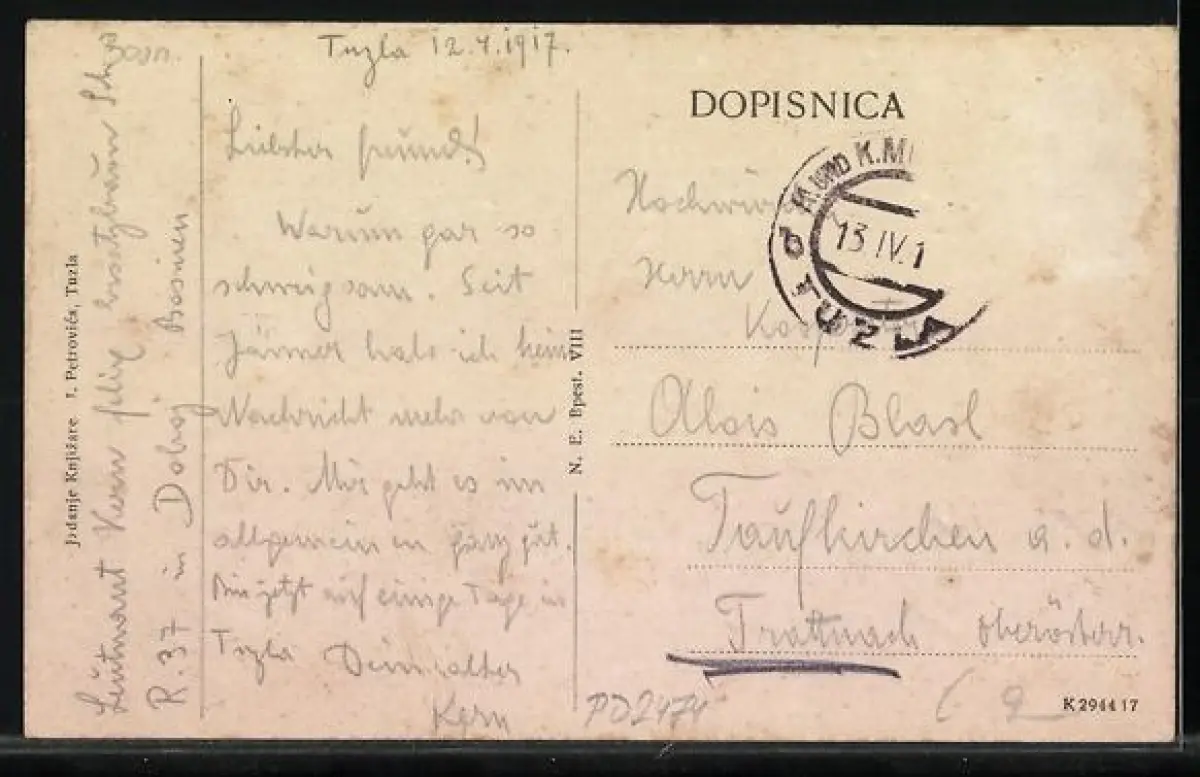 Tuzla 12.4.1917.
Liebster Freund!
Warum gar so
schweigsam. Seit
Jänner habe ich kein
Nachricht mehr von
Dir. Mir geht es im
allgemeinen ganz gut.
Bin jetzt auf einige Tage in
Tuzla Dein alter
Kern
Leutnant Kern Felix
R. 37 in Doboj Bosnien
Jzdanje Knjižare J. Petrovića, Tuzla
N. E. Bpest. VIII
DOPISNICA
K. UND K. MI
13 IV. 1
TUZLA
Hochwür
Herrn
Alois Blasl
Taufkirchen a. d.
Trattnach Oberösterr.
PD2474
K 294417